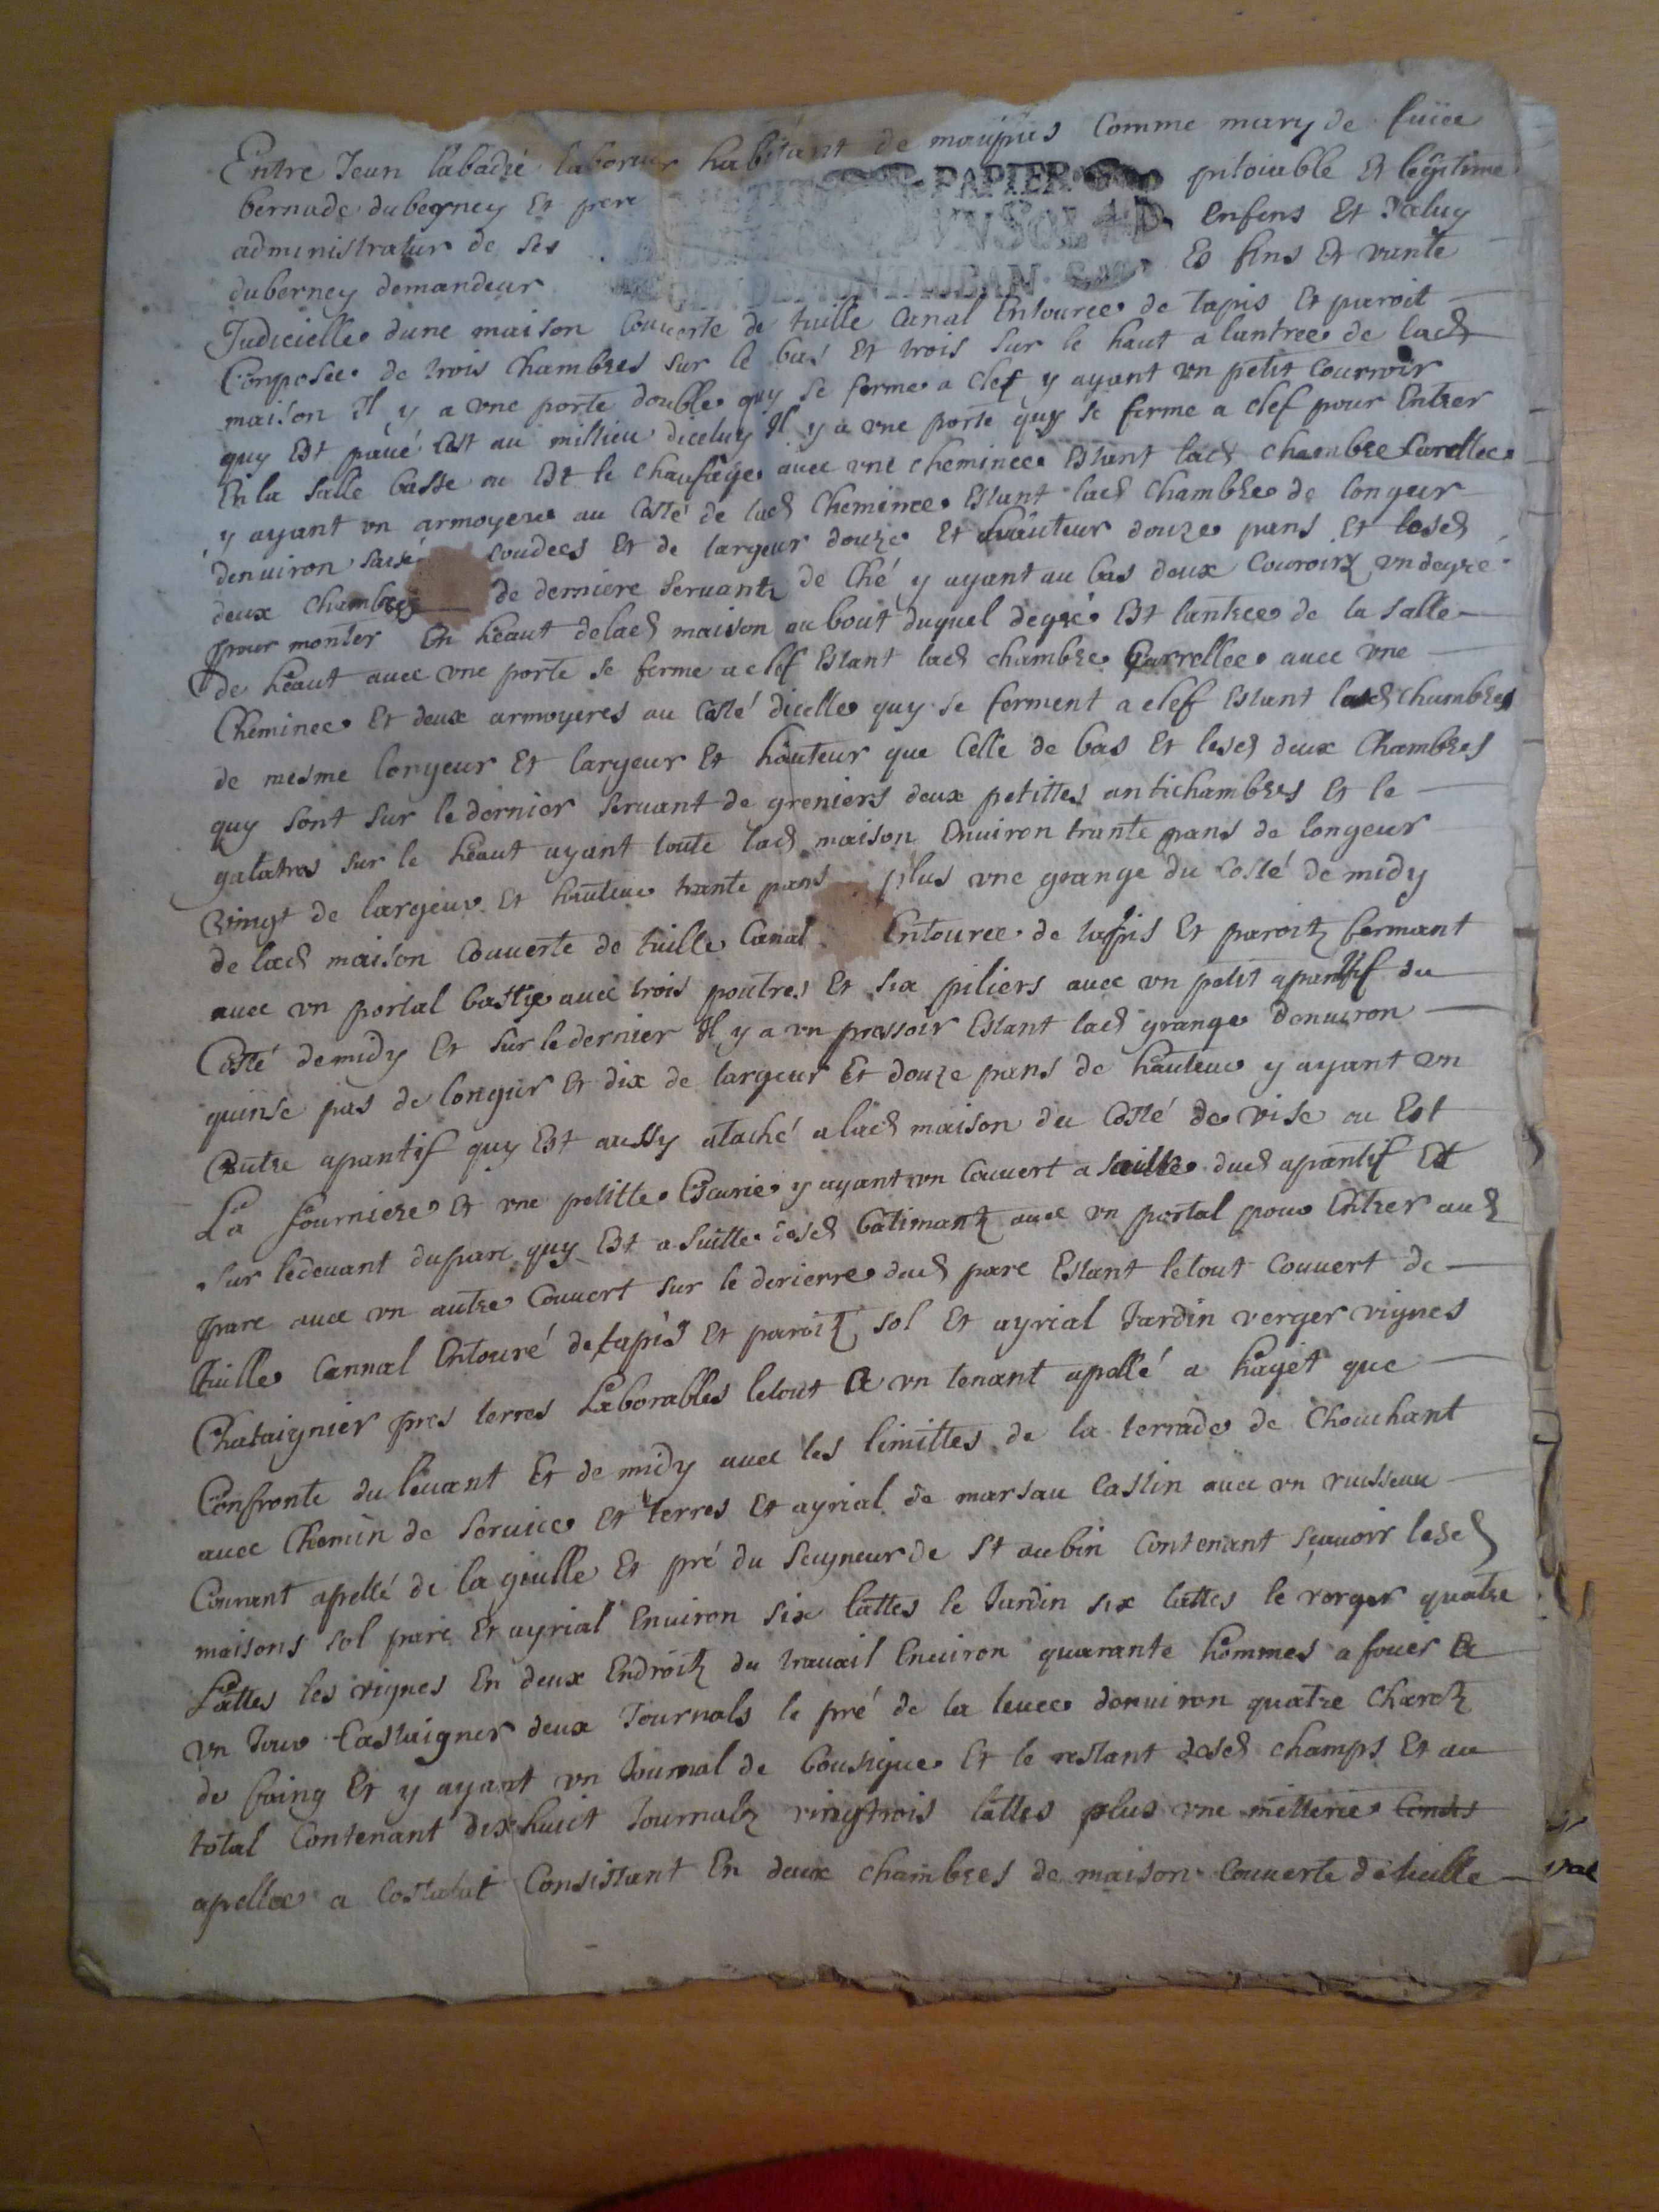 Entre Jean labadie laboreur habitant de maupas Comme mary de fuüe
bernade duberney Et pere
PAPIER
pitoiable Et legitime
administratur de ses
VN SOL
enfens Et daluy
duberney demandeur
DE MONTAUBAN
Es fins Et vante
Judicielle dune maison Couverte de tuille Canal Entouree de tapis Et paroit
Composee de trois Chambres sur le bas Et trois sur le haut a lantree de lad
maison Il y a vne porte double quy se ferme a clef y ayant vn petit Courroir
quy Est pavé Est au millieu diceluy Il y a vne porte quy se ferme a clef pour Entrer
En la salle basse ou Est le chaufage avec vne cheminee Estant lad chambre Carellee
y ayant vn armoyere au Costé de lad Cheminee Estant lad Chambre de longeur
denviron coudees Et de largeur douze Et hauteur douze pans Et lesd
deux chambres de derniere servantz de Ché y ayant au bas deux Couroirz vn degré
pour monter En heaut delad maison au bout duquel degré Est lantree de la salle
de heaut avec vne porte se ferme a clef Estant lad chambre Carrellee avec vne
Cheminee Et deux armoyeres au Costé dicelle quy se ferment a clef Estant lasd chambres
de mesme longeur Et largeur Et hauteur que Celle de bas Et lesd deux Chambres
quy sont sur le dernier servant de greniers deux petittes antichambres Et le
galatras sur le heaut ayant toute lad maison Environ trante pans de longeur
vingt de largeur Et hauteur trante pans plus vne grange du Costé de midy
de lad maison Couverte de tuille Canal Entouree de tapis Et paroitz fermant
avec vn portal bastye avec trois poutres Et six piliers avec vn petit apantif du
Costé de midy Et sur le dernier Il y a vn pressoir Estant lad grange denviron
quinse pas de longur Et dix de largeur Et douze pans de hauteur y ayant vn
autre apantif quy Est aussy ataché a lad maison du Costé de vise ou Est
La fourniere Et vne petitte Escurie y ayant vn Couvert a suitte dud apantif Et
sur ledevant duparc quy Est a suitte desd batimantz avec vn portal pour Entrer aud
parc avec vn autre Couvert sur le derierre dud parc Estant letout Couvert de
tuille Cannal Entouré de tapis Et paroitz sol Et ayrial Jardin verger vignes
Chataignier pres terres Laborables letout A vn tenant apellé a hayet que
Confronte du levant Et de midy avec les limittes de la terrade de Chouchant
avec Chemin de service Et terres Et ayrial de marsau Castin avec vn ruisseau
Courant apellé de la giulle Et pré du seigneur de St aubin Contenant scavoir lesd
maisons sol parc Et ayrial Environ six lattes le Jardin six lattes le verger quatre
Lattes les vignes En deux Endroitz du travail Environ quarante hommes a fouer A
vn Jour Castaigner deux Journals le pré de la levee denviron quatre Charetz
de foing Et y ayant vn Journal de bousigue Et le restant desd champs Et au
total Contenant dixhuict Journalz vingtrois lattes plus vne metterie
apellee a Costalat Consistant En deux chambres de maison Couverte de tuille